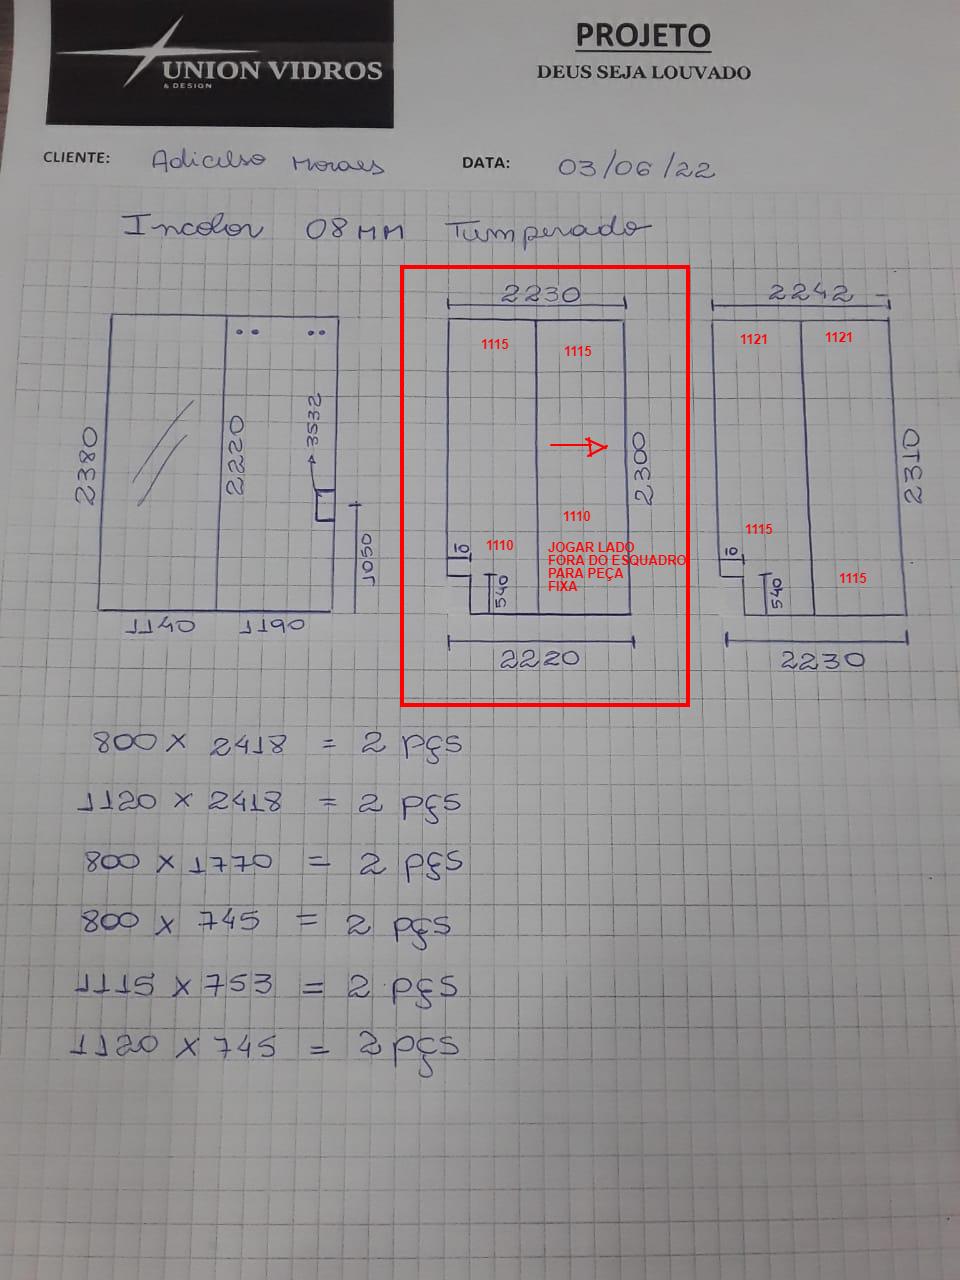 UNION VIDROS
& DESIGN
PROJETO
DEUS SEJA LOUVADO
CLIENTE: Adicelso Moraes DATA: 03/06/22
Incolor 08MM Temperado
2380
2220
3532
1050
1140 1190
2230
1115 1115
2300
1110
1110
JOGAR LADO
FORA DO ESQUADRO
PARA PEÇA
FIXA
10
540
2220
2242
1121 1121
2310
1115
1115
10
540
2230
800 x 2418 = 2 pçs
1120 x 2418 = 2 pçs
800 x 1770 = 2 pçs
800 x 745 = 2 pçs
1115 x 753 = 2 pçs
1120 x 745 = 2 pçs